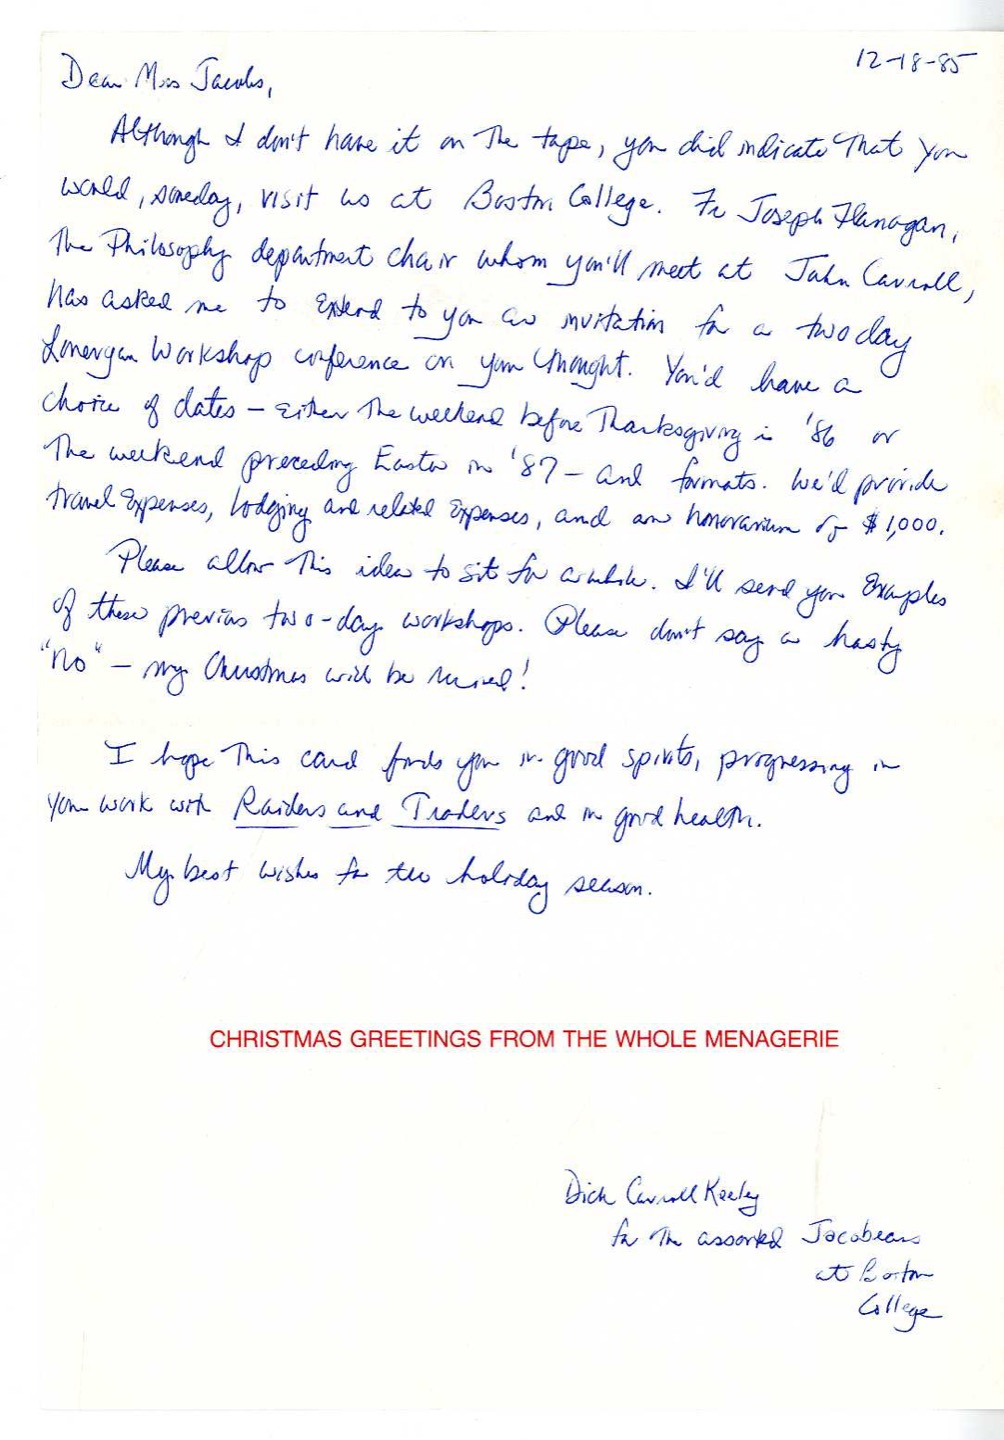 12-18-85
Dear Miss Jacobs,
Although I don't have it on the tape, you did indicate that you
would, someday, visit us at Boston College. Fr Joseph Flanagan,
the Philosophy department chair whom you'll meet at John Carroll,
has asked me to extend to you an invitation for a two day
Lonergan Workshop conference on your thought. You'd have a
choice of dates – either the weekend before Thanksgiving in '86 or
the weekend preceding Easter in '87 – and formats. We'd provide
travel expenses, lodging and related expenses, and an honorarium of $1,000.
Please allow this idea to sit for awhile. I'll send you examples
of these previous two-day workshops. Please don't say a hasty
"no" – my Christmas will be ruined!
I hope this card finds you in good spirits, progressing in
your work with Raiders and Traders and in good health.
My best wishes for the holiday season.
CHRISTMAS GREETINGS FROM THE WHOLE MENAGERIE
Dick Carroll Keeley
for the assorted Jacobeans
at Boston
College